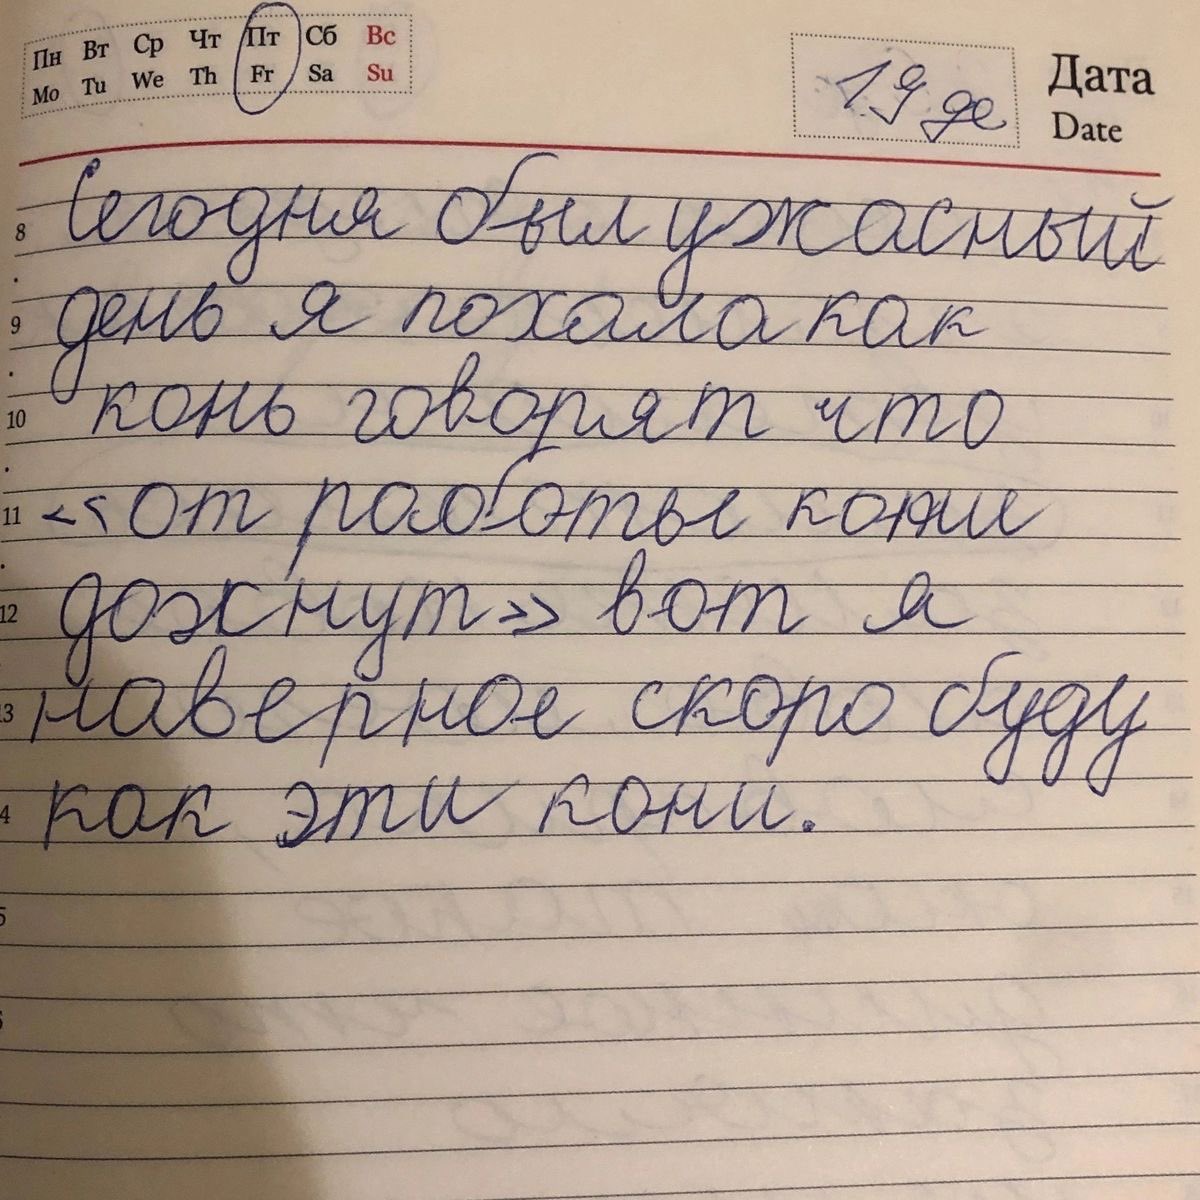 Пн Вт Ср Чт Пт Сб Вс
Mo Tu We Th Fr Sa Su
19 де
Дата
Date
8 Сегодня был ужасный
9 день я похала как
10 конь говорят что
11 «от работы кони
12 дохнут» вот я
13 наверное скоро буду
4 как эти кони.
5